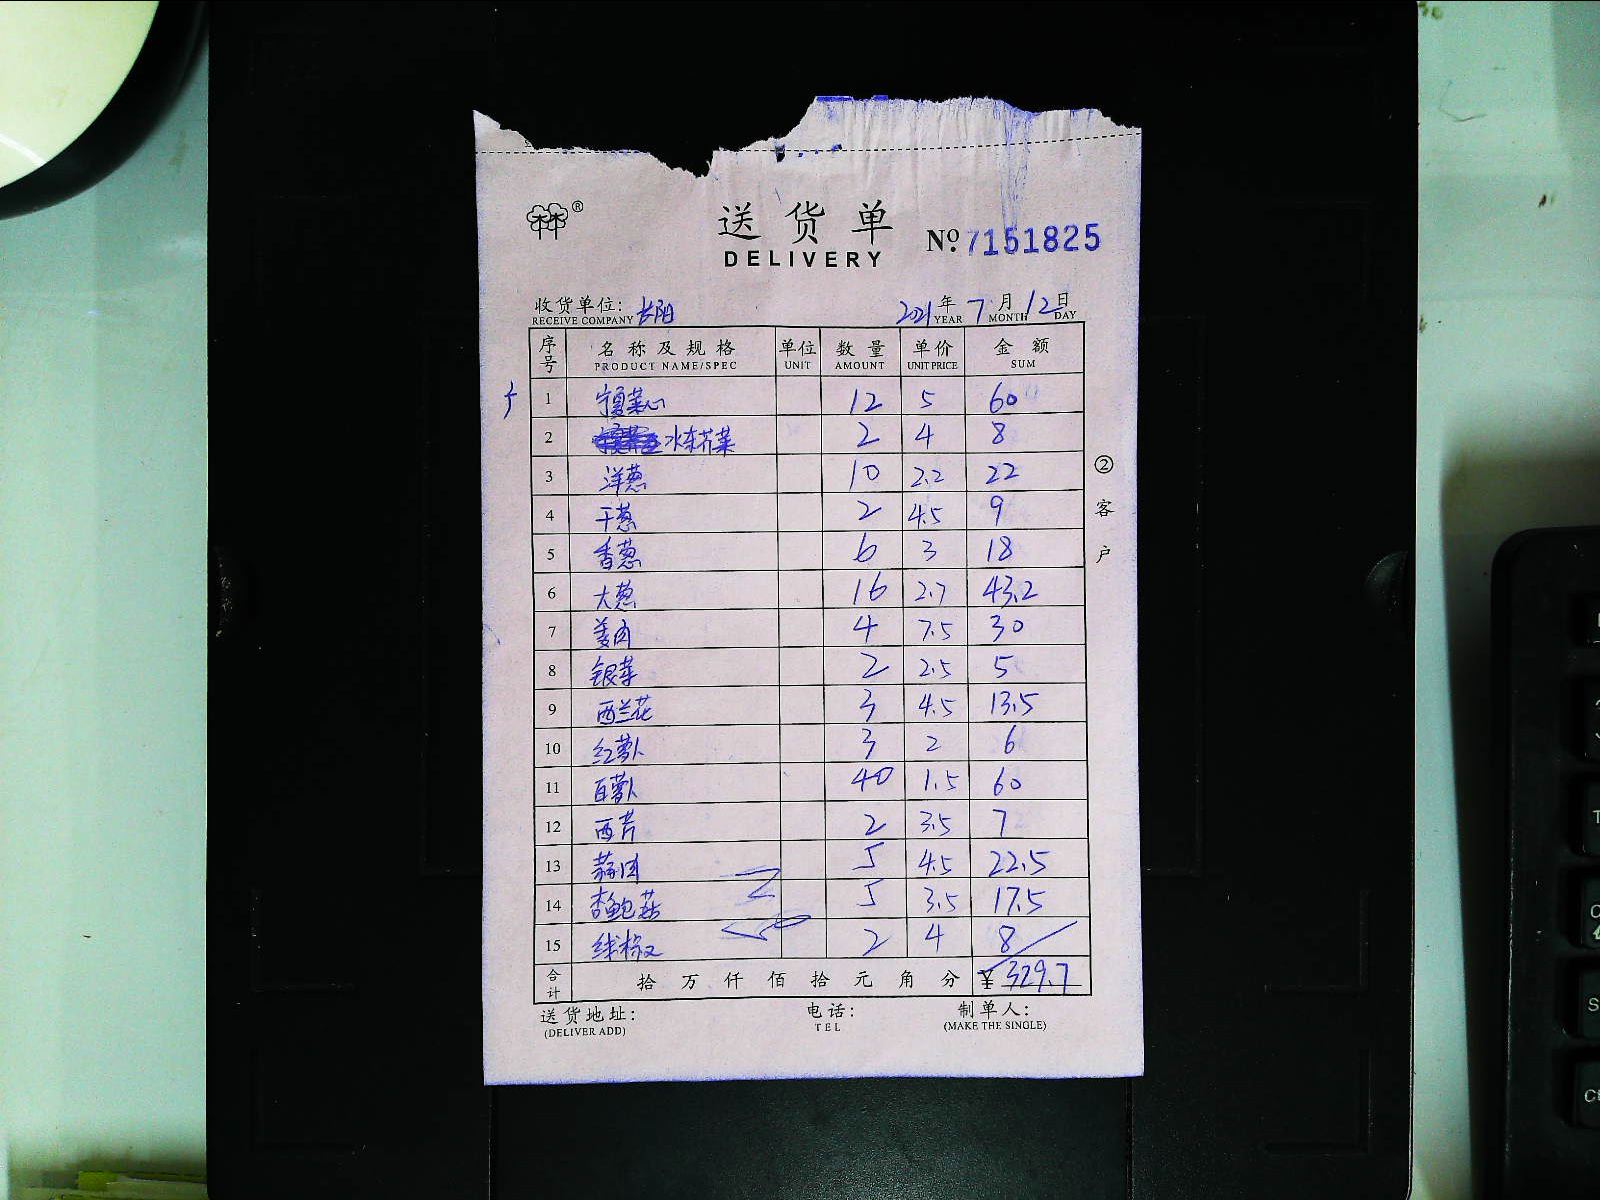 ®
送货单
DELIVERY
Nº 7151825
收货单位: 长阳 2021年7月12日
RECEIVE COMPANY YEAR MONTH DAY
序号 名称及规格 单位 数量 单价 金额
PRODUCT NAME/SPEC UNIT AMOUNT UNIT PRICE SUM
1 宁夏菜心 12 5 60
2 水东芥菜 2 4 8
3 洋葱 10 2.2 22
4 干葱 2 4.5 9
5 香葱 6 3 18
6 大葱 16 2.7 43.2
7 姜肉 4 7.5 30
8 银芽 2 2.5 5
9 西兰花 3 4.5 13.5
10 红萝卜 3 2 6
11 白萝卜 40 1.5 60
12 西芹 2 3.5 7
13 蒜肉 5 4.5 22.5
14 杏鲍菇 5 3.5 17.5
15 线椒 2 4 8
合计 拾万仟佰拾元角分 ¥ 329.7
送货地址: 电话: 制单人:
(DELIVER ADD) TEL (MAKE THE SINGLE)
②客户